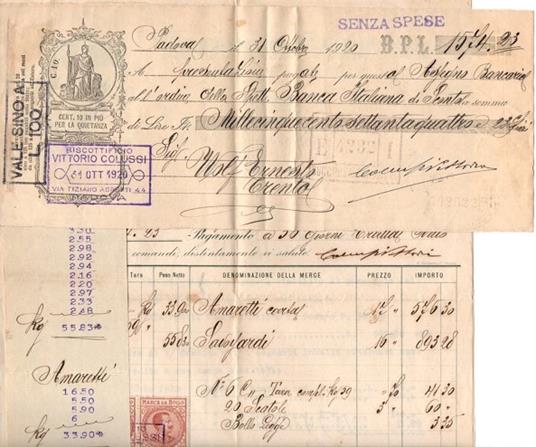 SENZA SPESE
Padova li 31 Ottobre 1920 B.P.L. 1574.23
A presentazione pagate per questo Assegno Bancario
all'ordine della Spett. Banca Italiana di Sconto la somma
di Lire It. Millecinquecentosettantaquattro e 23
Sig.
Wolf Ernesto
Trento
C. 10
CENT. 10 IN PIÙ
PER LA QUIETANZA
VALE SINO A L.
100
BISCOTTIFICIO
VITTORIO COLUSSI
31 OTT 1920
VIA TIZIANO ASPETTI 44
PADOVA
Pagamento a 30 Giorni
comandi, distintamente vi saluto
Tara Peso Netto DENOMINAZIONE DELLA MERCE PREZZO IMPORTO
Kg 33.90 Amaretti 17 " 576.30
" 55.83 Savojardi 16 " 893.28
N° 6 Cn Tara compl. Kg 39 41.30
20 Scatole 3 60 "
Bollo Legge 3.35
MARCA DA BOLLO
3.30
2.55
2.98
2.92
2.94
2.16
2.20
2.97
2.33
2.48
Kg 55.83
Amaretti
16.50
5.50
5.90
6
Kg 33.90